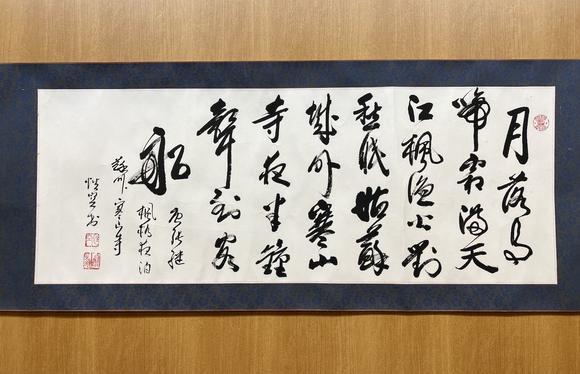 月落烏
啼霜滿天
江楓漁火對
愁眠姑蘇
城外寒山
寺夜半鐘
聲到客
船
唐張継
楓橋夜泊
蘇州寒山寺